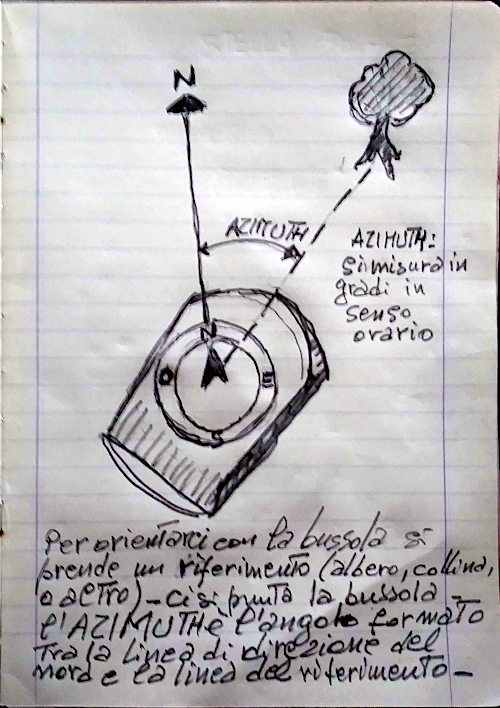 N
AZIMUTH
AZIMUTH:
si misura in
gradi in
senso
orario
N
O
E
S
Per orientarci con la bussola si
prende un riferimento (albero, collina,
o altro) - ci si punta la bussola -
l'AZIMUTH è l'angolo formato
Tra la linea di direzione del
nord e la linea del riferimento -